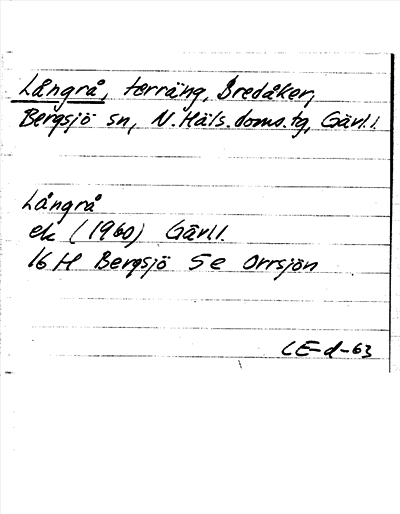 Långrå, terräng, Bredåker,
Bergsjö sn, N. Häls. doms. tg, Gävl. l.
Långrå
ek (1960) Gävl. l.
16 H Bergsjö 5e Orrsjön
CE-d-63